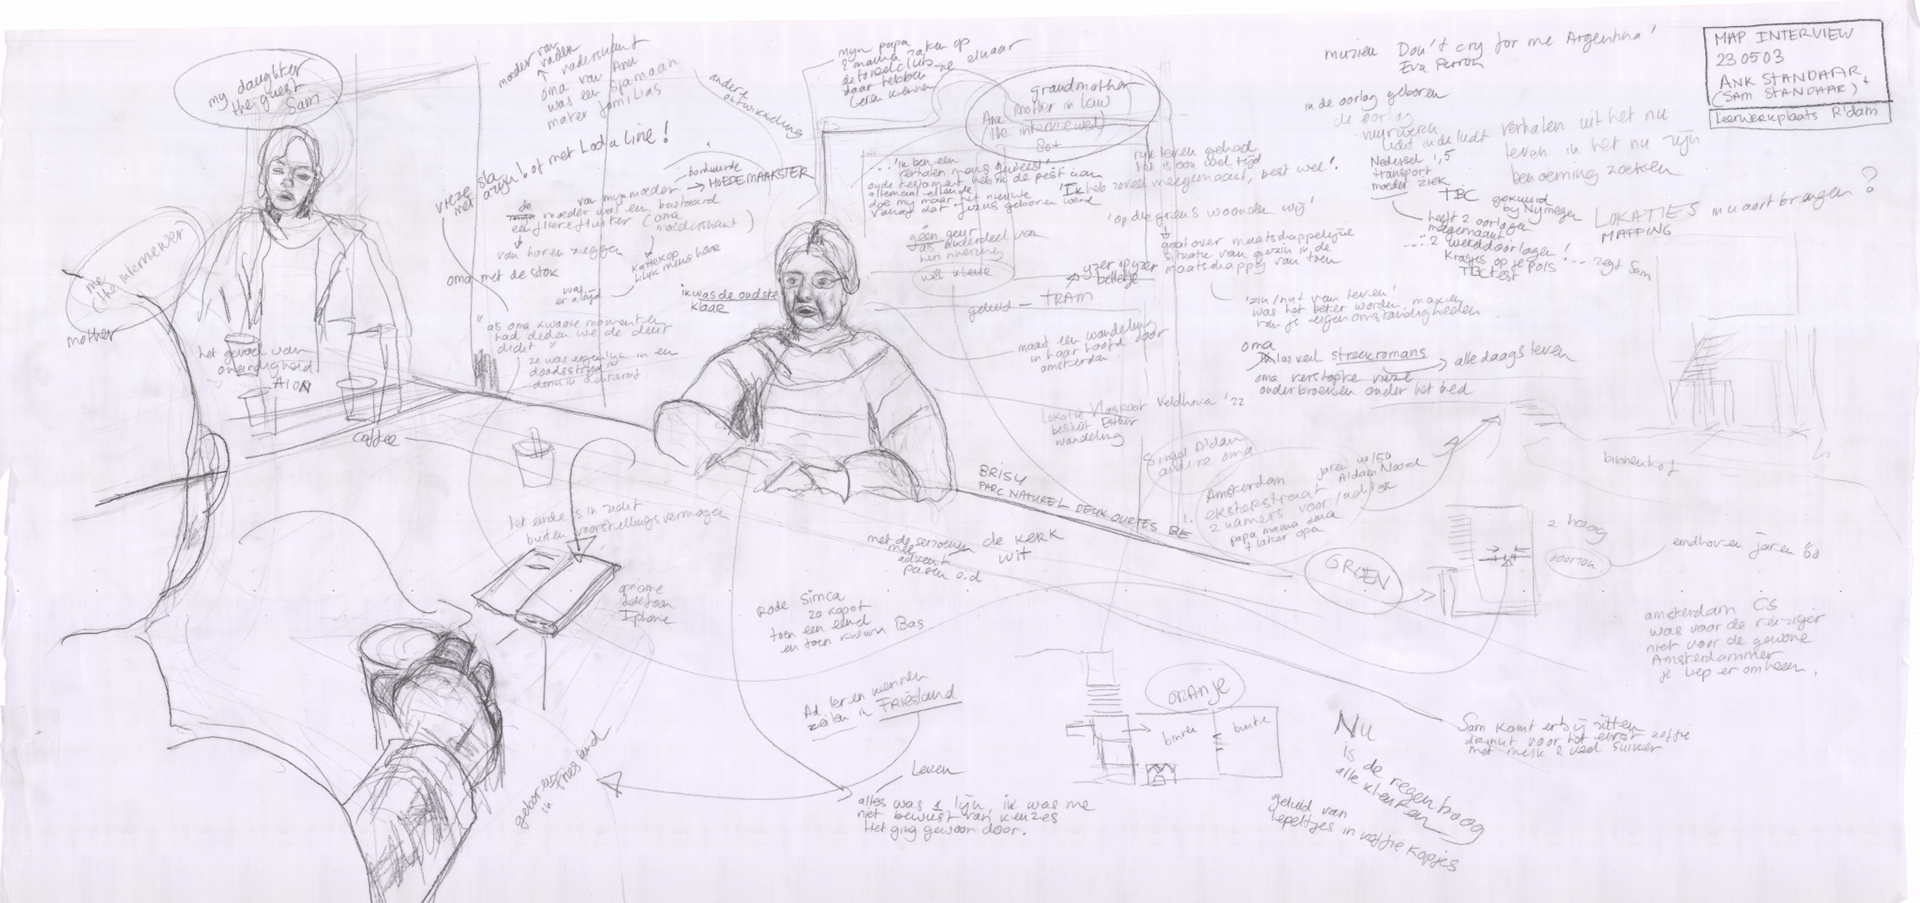 MAP INTERVIEW
23 05 03
ANK STANDAAR +
(SAM STANDAAR)
Leerwerkplaats R'dam
my daughter
the guest
Sam
me
(the interviewer)
mother
moeder van
vader
vaderskant
oma van Ank
was een sjamaan
mater familias
andere
ontwikkeling
mijn papa
& mama zaten op
daar hebben ze elkaar
leren kennen
grandmother
mother in law
Ank
the interviewed
80+
muziek Don't cry for me Argentina'
Eva Perron
in de oorlog geboren
de oorlog
vuurwerk
licht in de lucht
verhalen uit het nu
leven in het nu zijn
benoeming zoeken
vieze sla
met azijn bof met Lodaline!
borduurde
→ HOEDEMAAKSTER
van mijn moeder
de moeder was een bastaard
(oma
moederskant)
van horen zeggen
oma met de stok
kattekop
lijkt meng haar
was
er altijd
ik was de oudste
klaar
"als oma kwaaie momenten
had deden we de deur
dicht"
ze was eigenlijk in een
doodsstrijd
het gevoel van
oneindigheid
AION
coffee
'ik ben een
verhalen mens geweest'
oude testament heb ik de pest aan
allemaal ellende
doe mij maar het nieuwe
vanaf dat Jezus geboren werd
rijk leven gehad
tot is aan wel tijd
'Ik heb zoveel meegemaakt, best wel'!
'op die griens woonden wij'
gaat over maatschappelijke
situatie van gezin in de
maatschappij van toen
geen geur
als onderdeel van
hun inverzing
geluid — TRAM
ijzer op ijzer
belletje
maakt een wandeling
in haar hoofd door
amsterdam
Nederl 1,5
transport
moeder ziek
TBC
gekuurd
bij Nijmegen
heeft 2 oorlogen
meegemaakt
..."2 wereldoorlogen!... zegt Sam
krasjes op je pols
TBC test
LOKATIES in kaart brengen?
MAPPING
'zin/nut van leven'
was het beter worden, maken
van je eigen omstandigheden
oma
las veel streekromans → alledaags leven
oma verstopte vieze
onderbroeken onder het bed
Lokatie Vlaskoot Veldhoven '22
besluit Esther
wandeling
Singel A'dam
andere oma
jaren 40/50
A'dam Noord
Amsterdam
eksterstraat
2 kamers
papa mama oma
+ later opa
BRISY
PARC NATUREL DEUX OURTES BE
binnenhof
2 hoog
eindhoven jaren 60
GROEN
het einde is in zicht
buiten voorstellingsvermogen
opname
telefoon
Iphone
met de seizoenen
mee
advent
pasen e.d
de kerk
wit
Rode Simca
zo kapot
toen een eend
en toen kwam Bas
Ad leren kennen
zeilen in Friesland
geboren
in Friesland
Leven
alles was 1 lijn, ik was me
niet bewust van keuzes
Het ging gewoon door.
ORANJE
binnen
buiten
Nu
is de regenboog
alle kleuren
geluid van
lepeltjes in koffie kopjes
amsterdam CS
was voor de reiziger
niet voor de gewone
Amsterdammer
je liep er omheen,
Sam komt erbij zitten
drinkt voor het eerst koffie
met melk & veel suiker